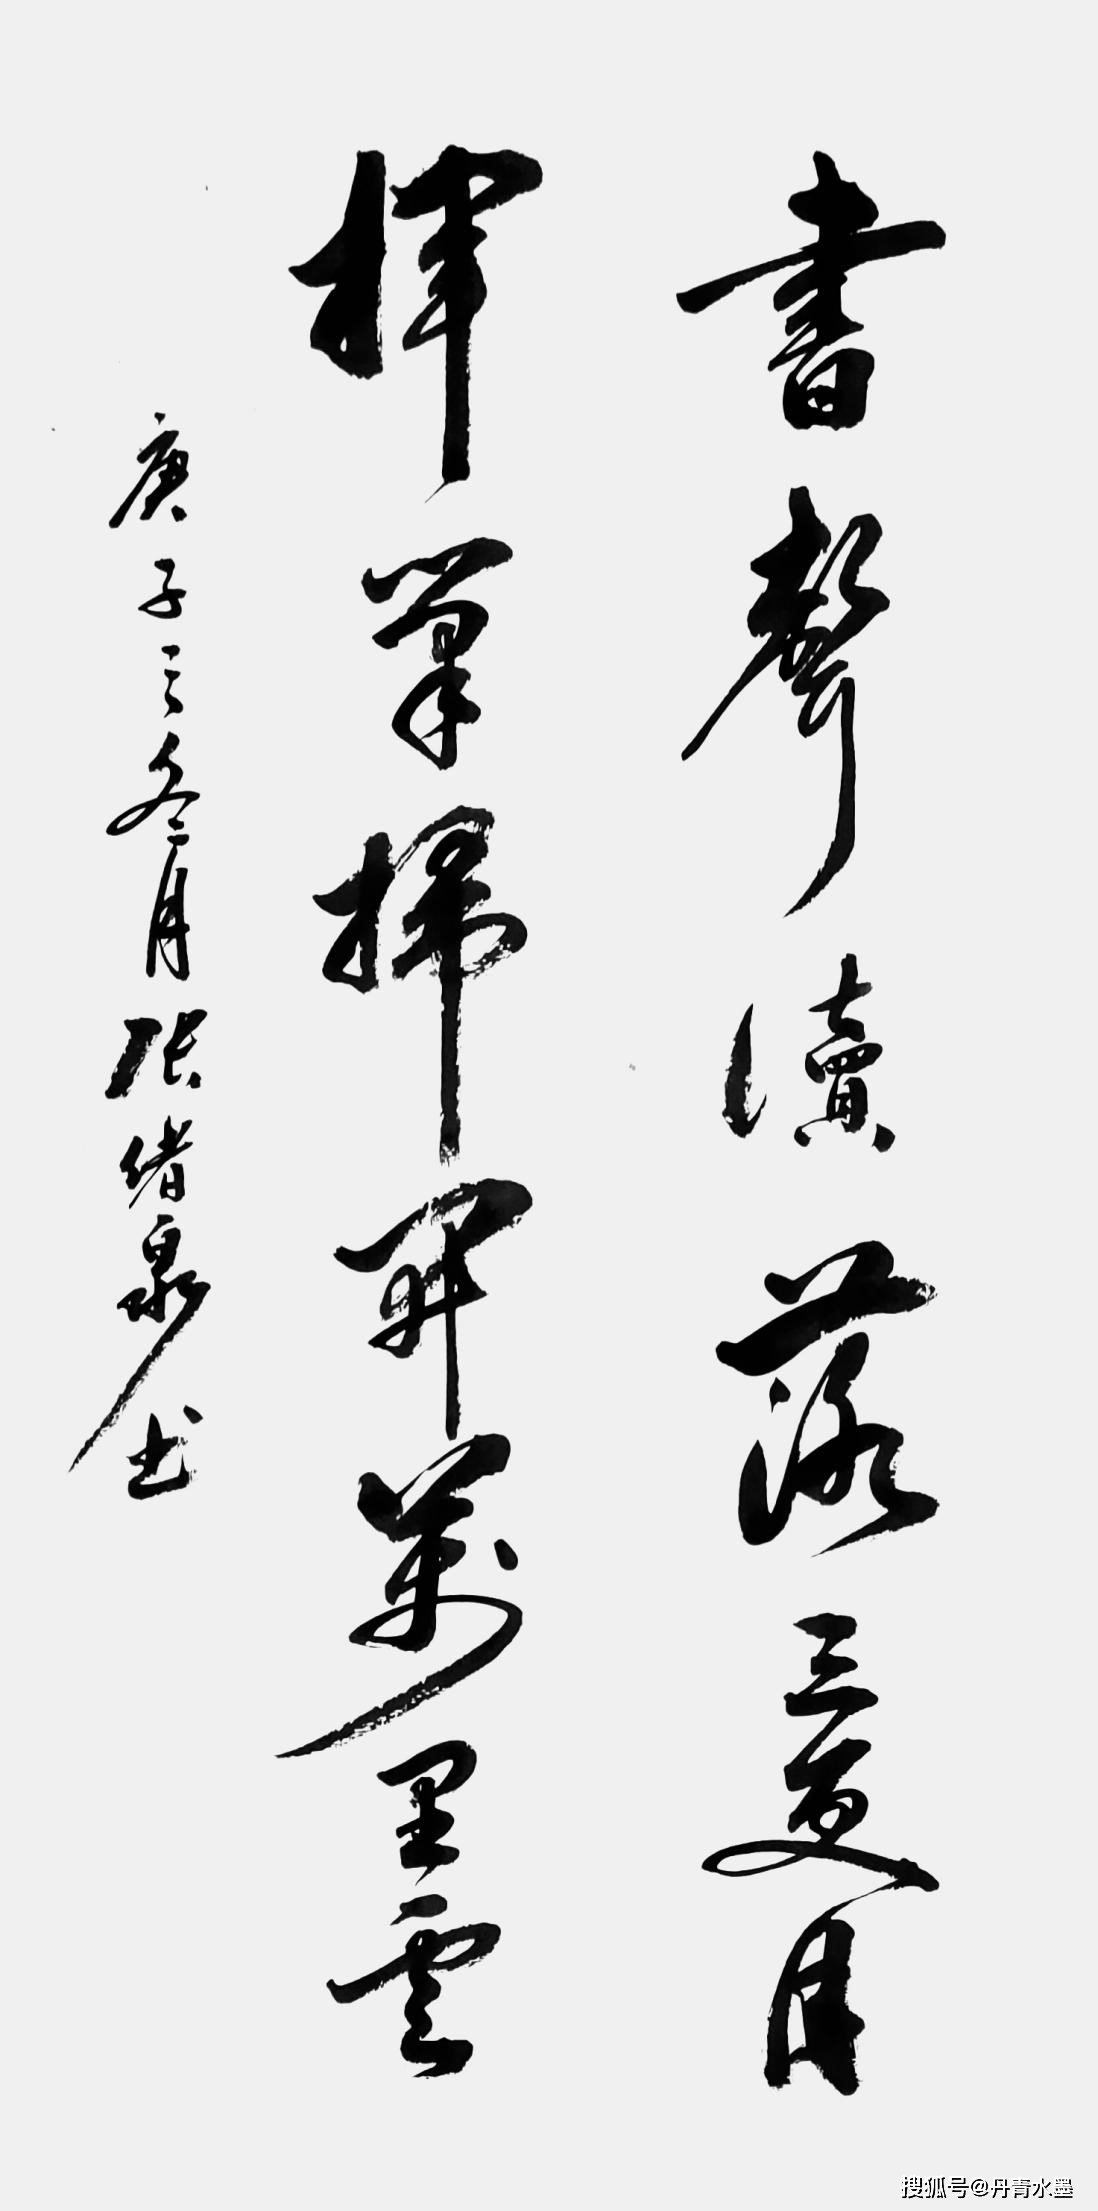 書聲讀落三更月
揮筆掃開萬里雲
庚子之冬月張緒泉书
搜狐号@丹青水墨